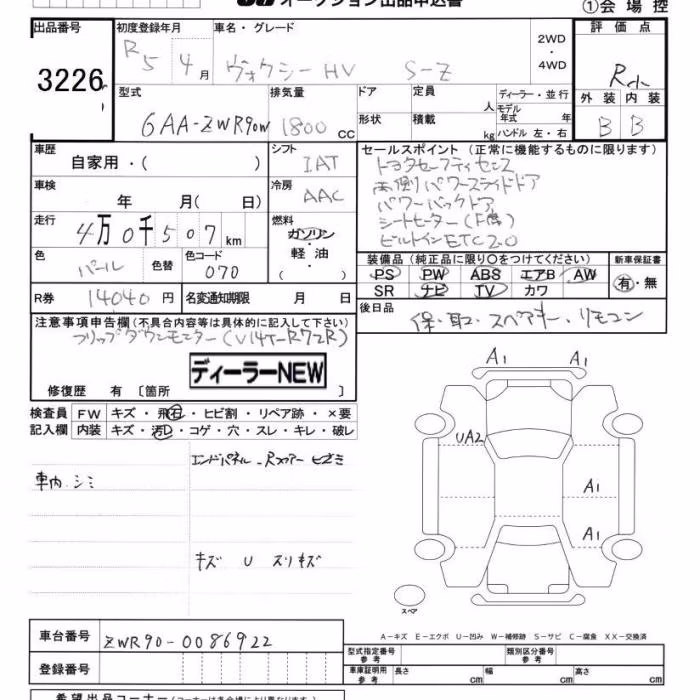 オークション出品申込書
①会場控
出品番号 初度登録年月 車名・グレード 評価点
3226 R5 4月 ヴォクシーHV S-Z 2WD ・ 4WD
型式 排気量 ドア 定員 人 ディーラー・並行
形状 積載 kg モデル年式 年 ハンドル 左・右
6AA-ZWR90W 1800 CC 外装 内装
B B
車歴 シフト セールスポイント (正常に機能するものに限ります)
自家用・( ) IAT トヨタセーフティセンス
車検 冷房 両側パワースライドドア
年 月( 日) AAC パワーバックドア
走行 燃料 シートヒーター(F席)
4万0千507km ガソリン・軽油・( ) ビルトインETC2.0
色 色替 色コード 装備品 (純正品に限り〇をつけてください) 新車保証書
パール 070 PS PW ABS エアB AW 有・無
SR ナビ TV カワ
R券 14040円 名変通知期限 月 日 後日品
保・取・スペアキー・リモコン
注意事項申告欄(不具合内容等は具体的に記入して下さい)
フリップダウンモニター(V14T-R72R)
ディーラーNEW
修復歴 有 〔箇所 〕
検査員 FW キズ・飛石・ヒビ割・リペア跡・×要
記入欄 内装 キズ・汚れ・コゲ・穴・スレ・キレ・破レ
A1 A1
UA2
車内シミ
A1
A1
キズ U スリキズ
スペア
A-キズ E-エクボ U-凹み W-補修跡 S-サビ C-腐食 XX-交換済
車台番号 ZWR90-0086922
登録番号
型式指定番号 参考 類別区分番号 参考
車庫証明用 参考 長さ cm 幅 cm 高さ cm
希望出品コーナー